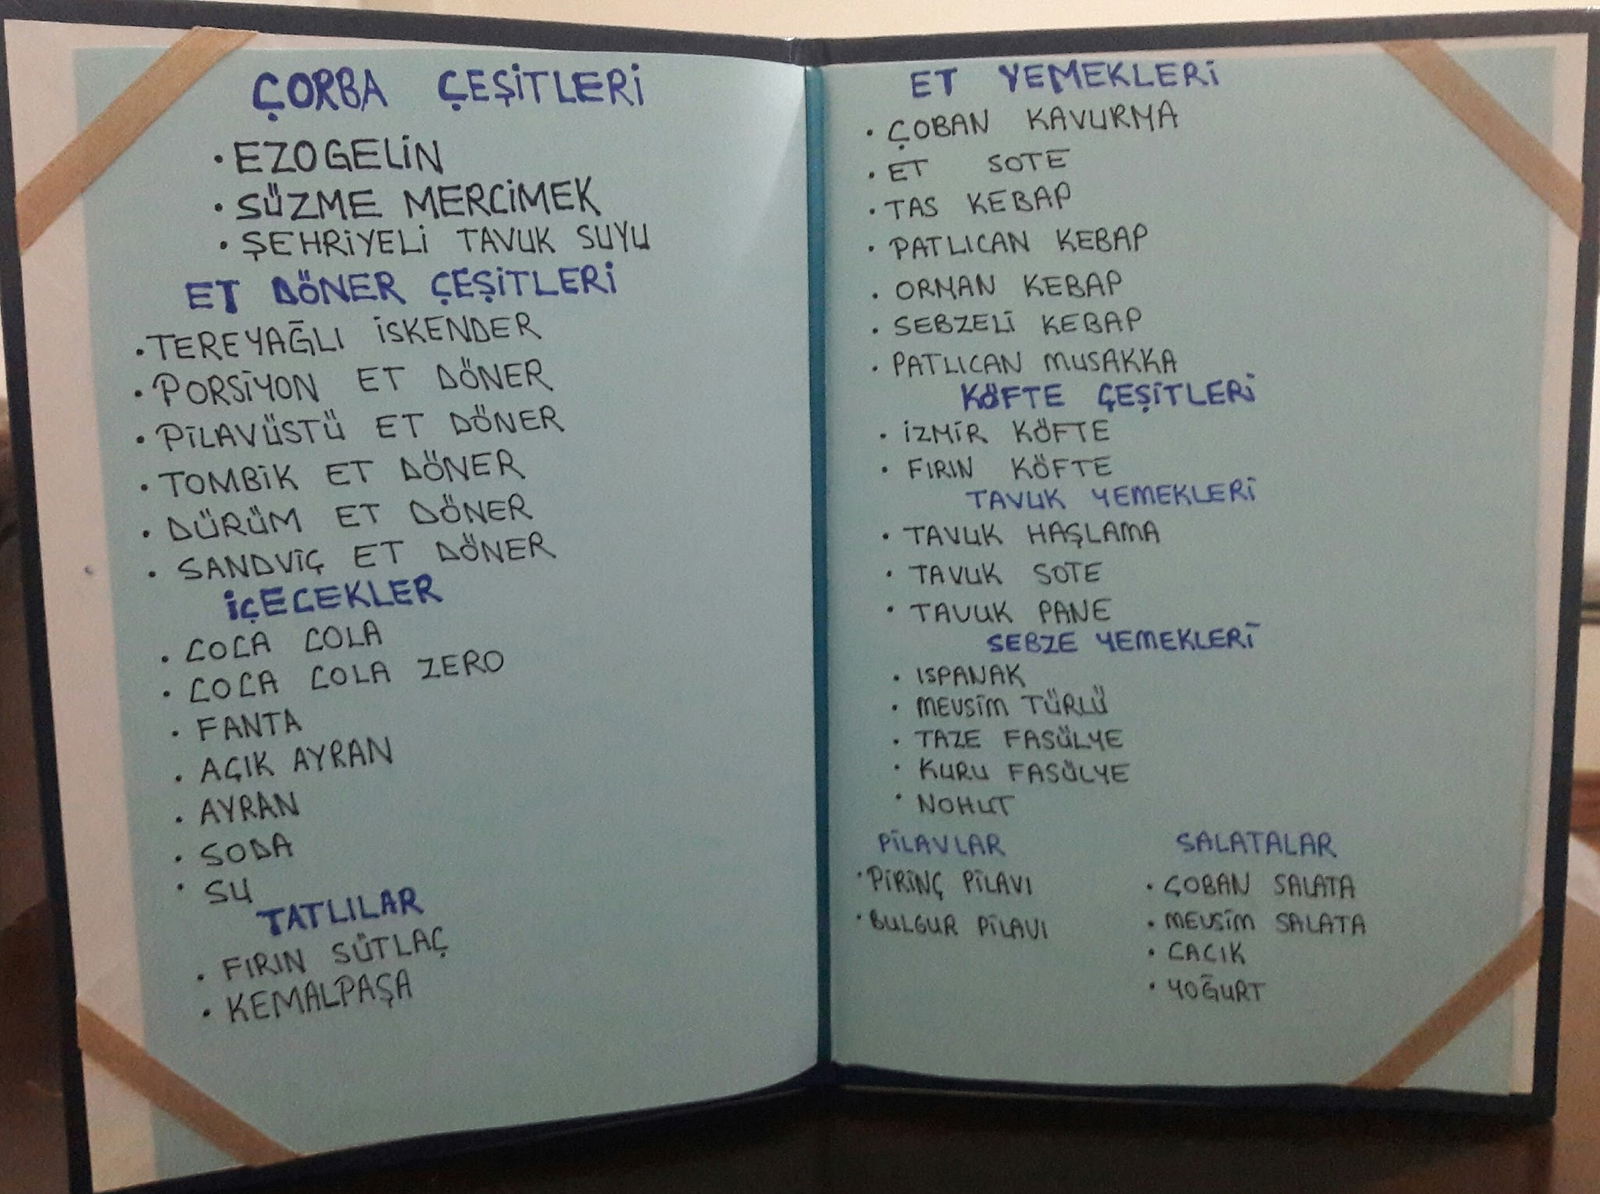 ÇORBA ÇEŞİTLERİ
• EZOGELİN
• SÜZME MERCİMEK
• ŞEHRİYELİ TAVUK SUYU
ET DÖNER ÇEŞİTLERİ
• TEREYAĞLI İSKENDER
• PORSİYON ET DÖNER
• PİLAVÜSTÜ ET DÖNER
• TOMBİK ET DÖNER
• DÜRÜM ET DÖNER
• SANDVİÇ ET DÖNER
İÇECEKLER
• COCA COLA
• COCA COLA ZERO
• FANTA
• AÇIK AYRAN
• AYRAN
• SODA
• SU
TATLILAR
• FIRIN SÜTLAÇ
• KEMALPAŞA
ET YEMEKLERİ
• ÇOBAN KAVURMA
• ET SOTE
• TAS KEBAP
• PATLICAN KEBAP
• ORMAN KEBAP
• SEBZELİ KEBAP
• PATLICAN MUSAKKA
KÖFTE ÇEŞİTLERİ
• İZMİR KÖFTE
• FIRIN KÖFTE
TAVUK YEMEKLERİ
• TAVUK HAŞLAMA
• TAVUK SOTE
• TAVUK PANE
SEBZE YEMEKLERİ
• ISPANAK
• MEVSİM TÜRLÜ
• TAZE FASÜLYE
• KURU FASÜLYE
• NOHUT
PİLAVLAR
• PİRİNÇ PİLAVI
• BULGUR PİLAVI
SALATALAR
• ÇOBAN SALATA
• MEVSİM SALATA
• CACIK
• YOĞURT